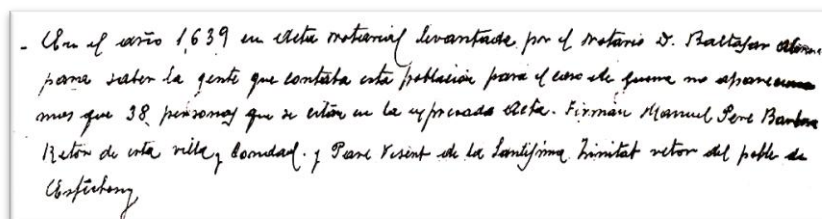 - En el año 1,639 en Acta notarial levantada por el Notario D. Baltasar
para saber la gente que contaba esta población para el caso de guerra no aparecieron
mas que 38 personas que se citan en la expresada Acta. Firman Manuel Pere Barbera
Retor de esta villa y Condad. y Pare Visent de la Santisima Trinitat retor del poble de